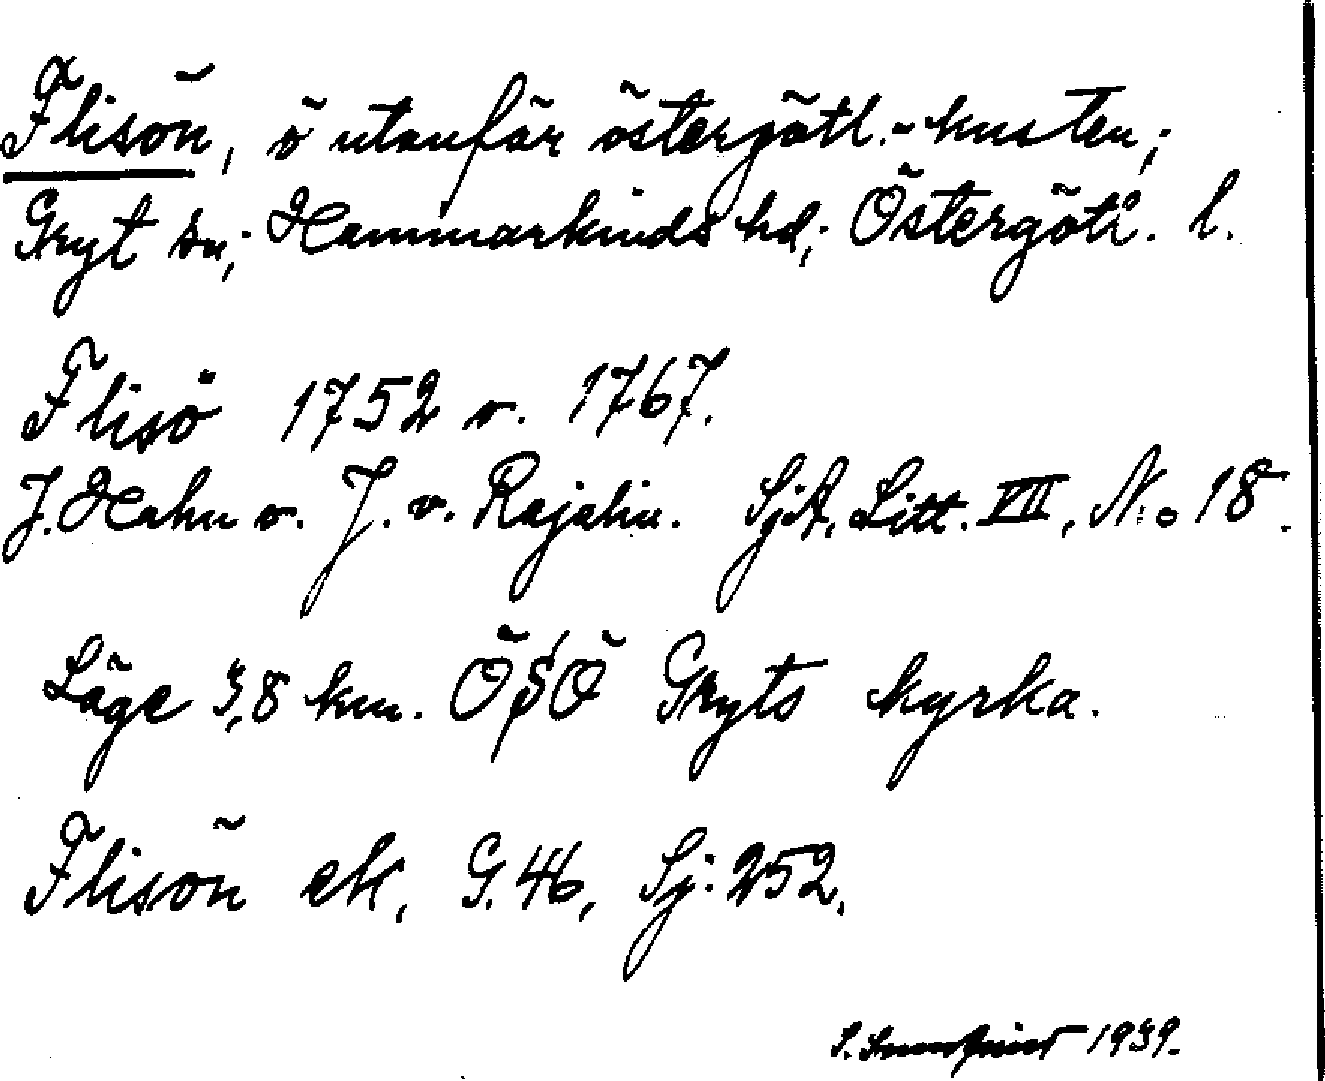 Flisön, ö utanför östergötl.-kusten;
Gryt sn; Hammarkinds hd; Östergötl. l.
Flisö 1752 o. 1767.
J. Hahn o. J. v. Rajalin. SjA, Litt. VII, N:o 18.
Läge 3,8 km. ÖSÖ Gryts kyrka.
Flisön ek, G. 46, Sj: 252.
S. 1939.